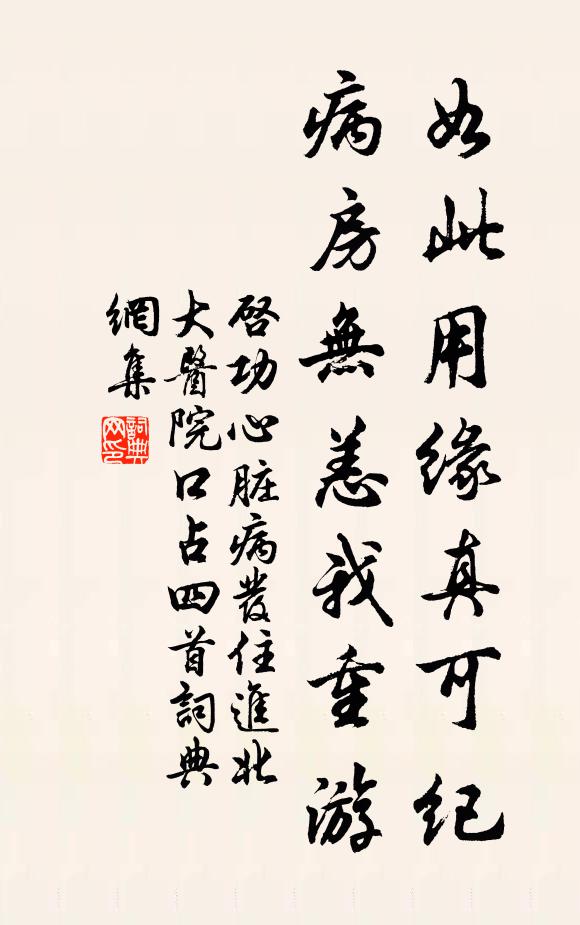 如此用緣真可紀
病房無恙我重游
啓功心脏病發住進北
大醫院口占四首詞典
網集
詞典
网印